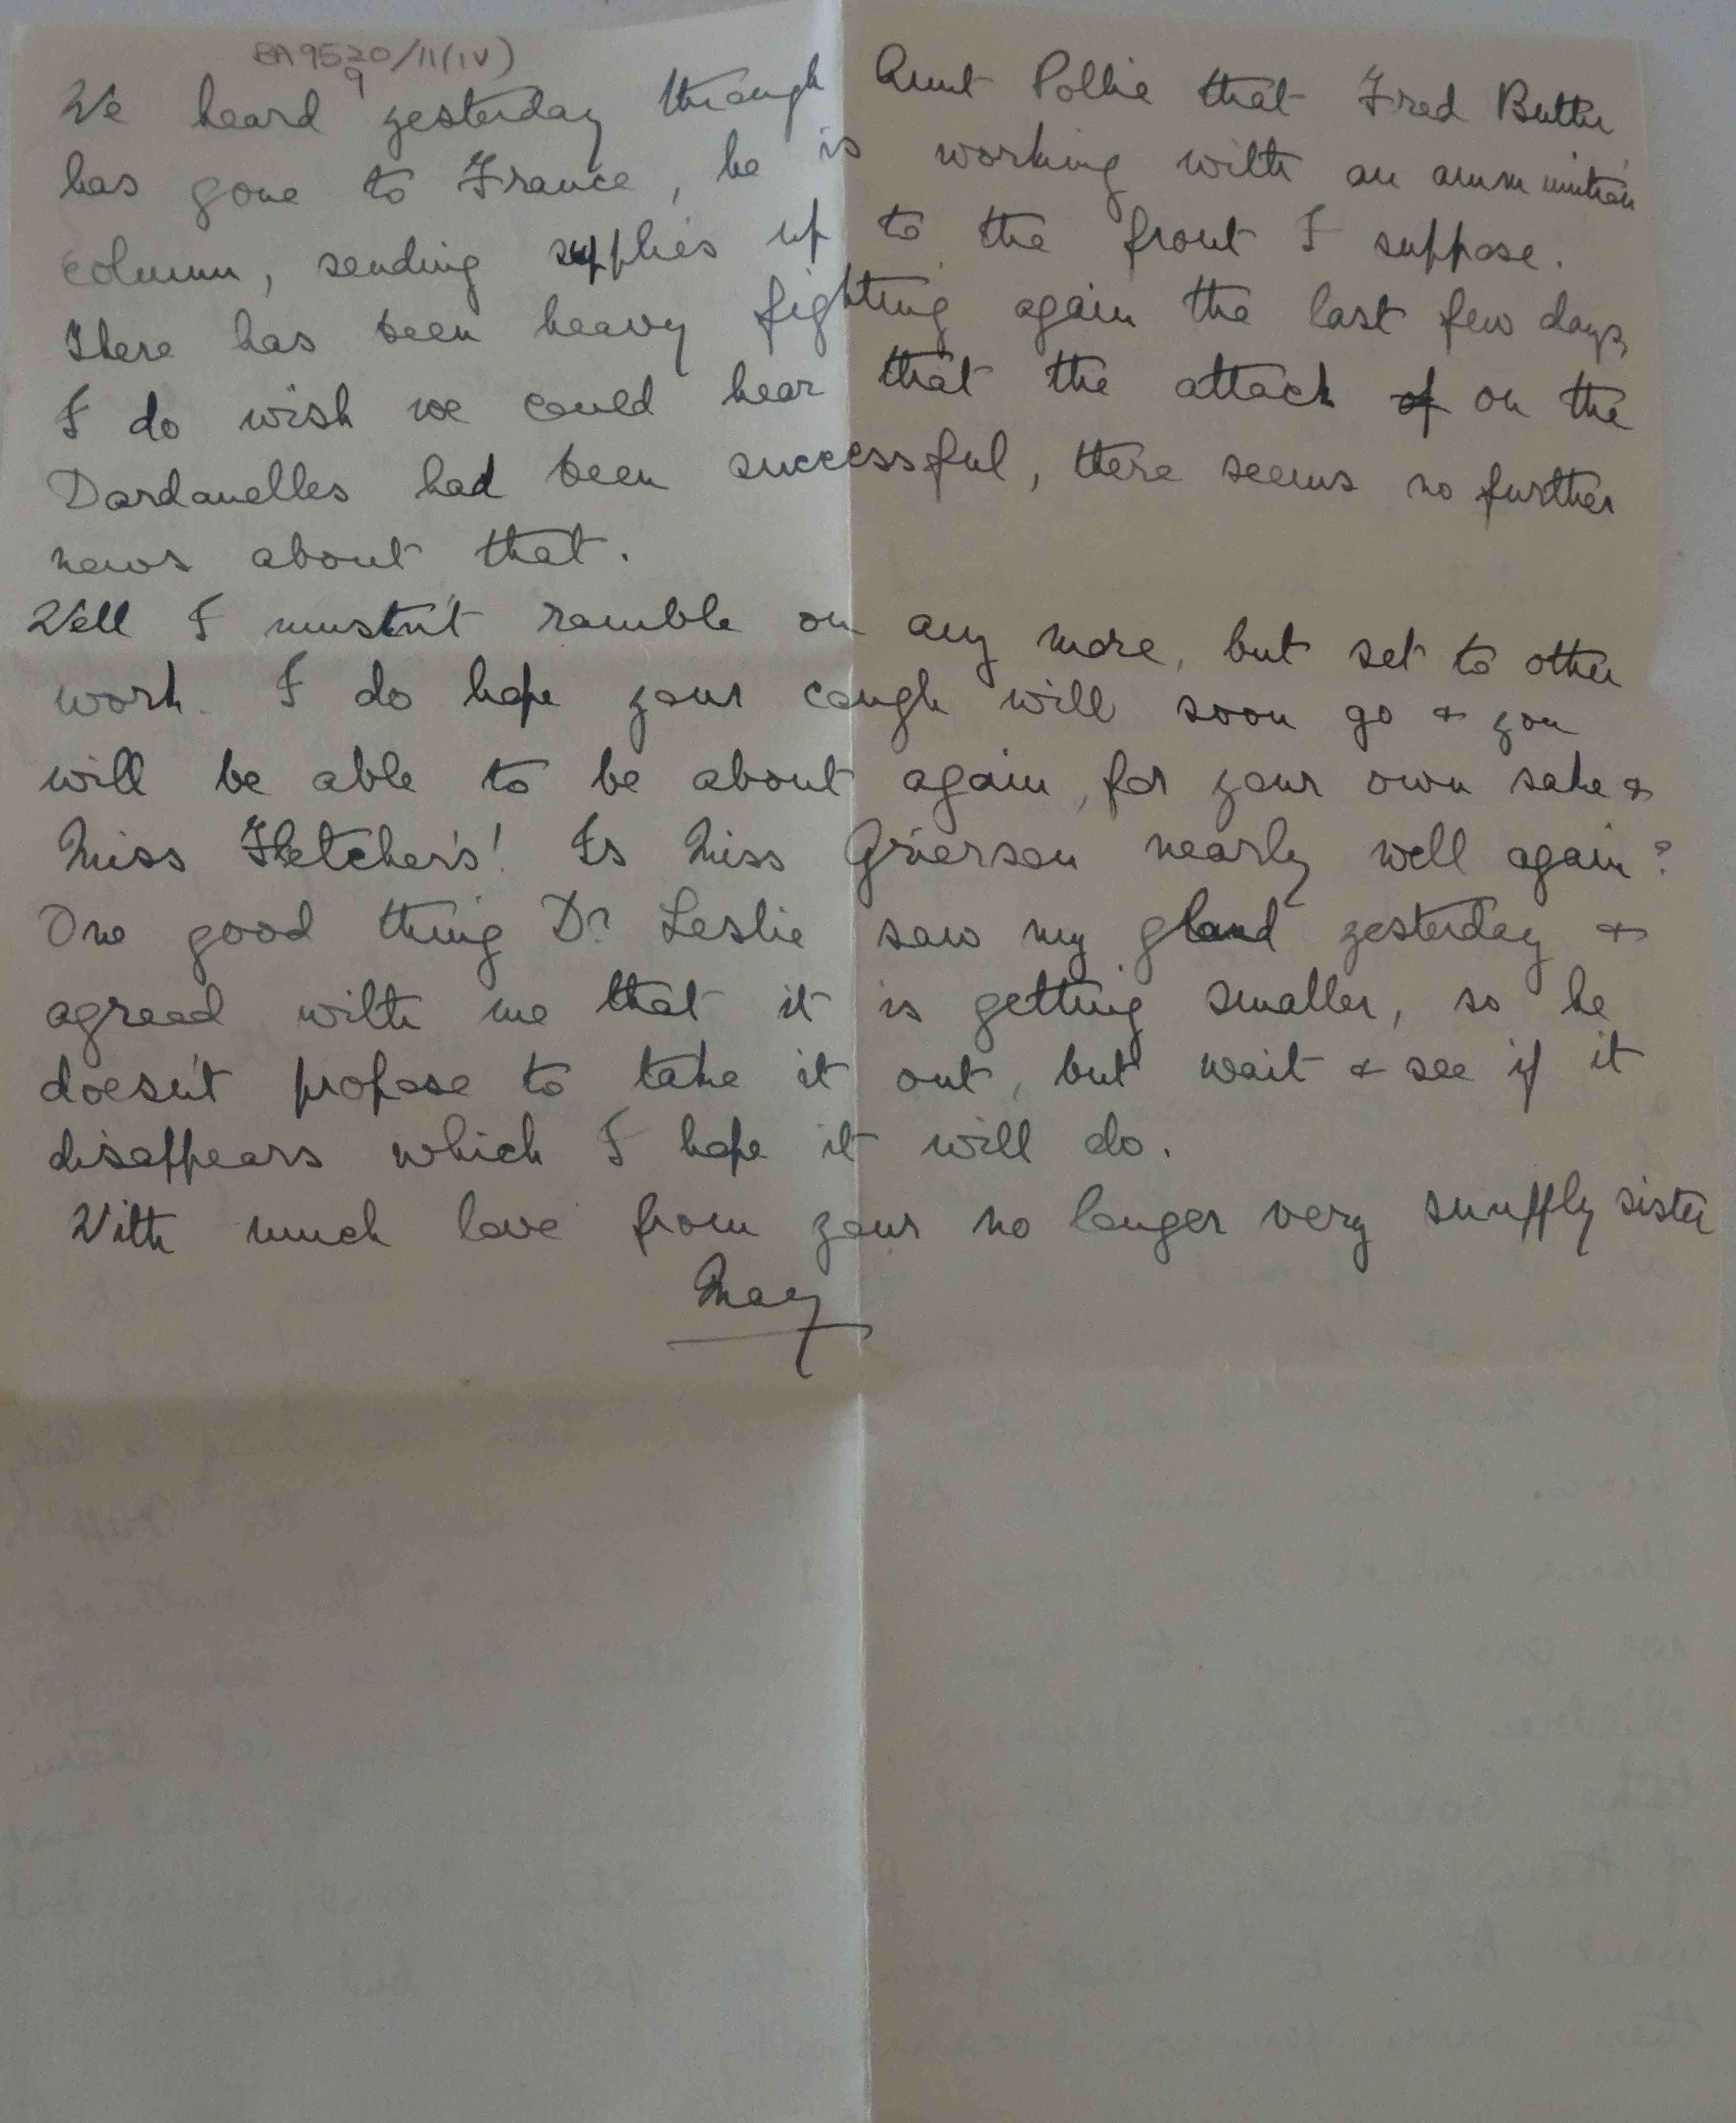 BA 9520/11(iv)
9
We heard yesterday through Aunt Pollie that Fred Butler
has gone to France, he is working with an ammunition
column, sending supplies up to the front I suppose.
There has been heavy fighting again the last few days,
I do wish we could hear that the attack of on the
Dardanelles had been successful, there seems no further
news about that.
Well I mustn't ramble on any more, but set to other
work. I do hope your cough will soon go & you
will be able to be about again, for your own sake &
Miss Fletcher's! Is Miss Grierson nearly well again?
One good thing Dr Leslie saw my gland yesterday &
agreed with me that it is getting smaller, so he
doesn't propose to take it out, but wait & see if it
disappears which I hope it will do.
With much love from your no longer very snuffly sister
May